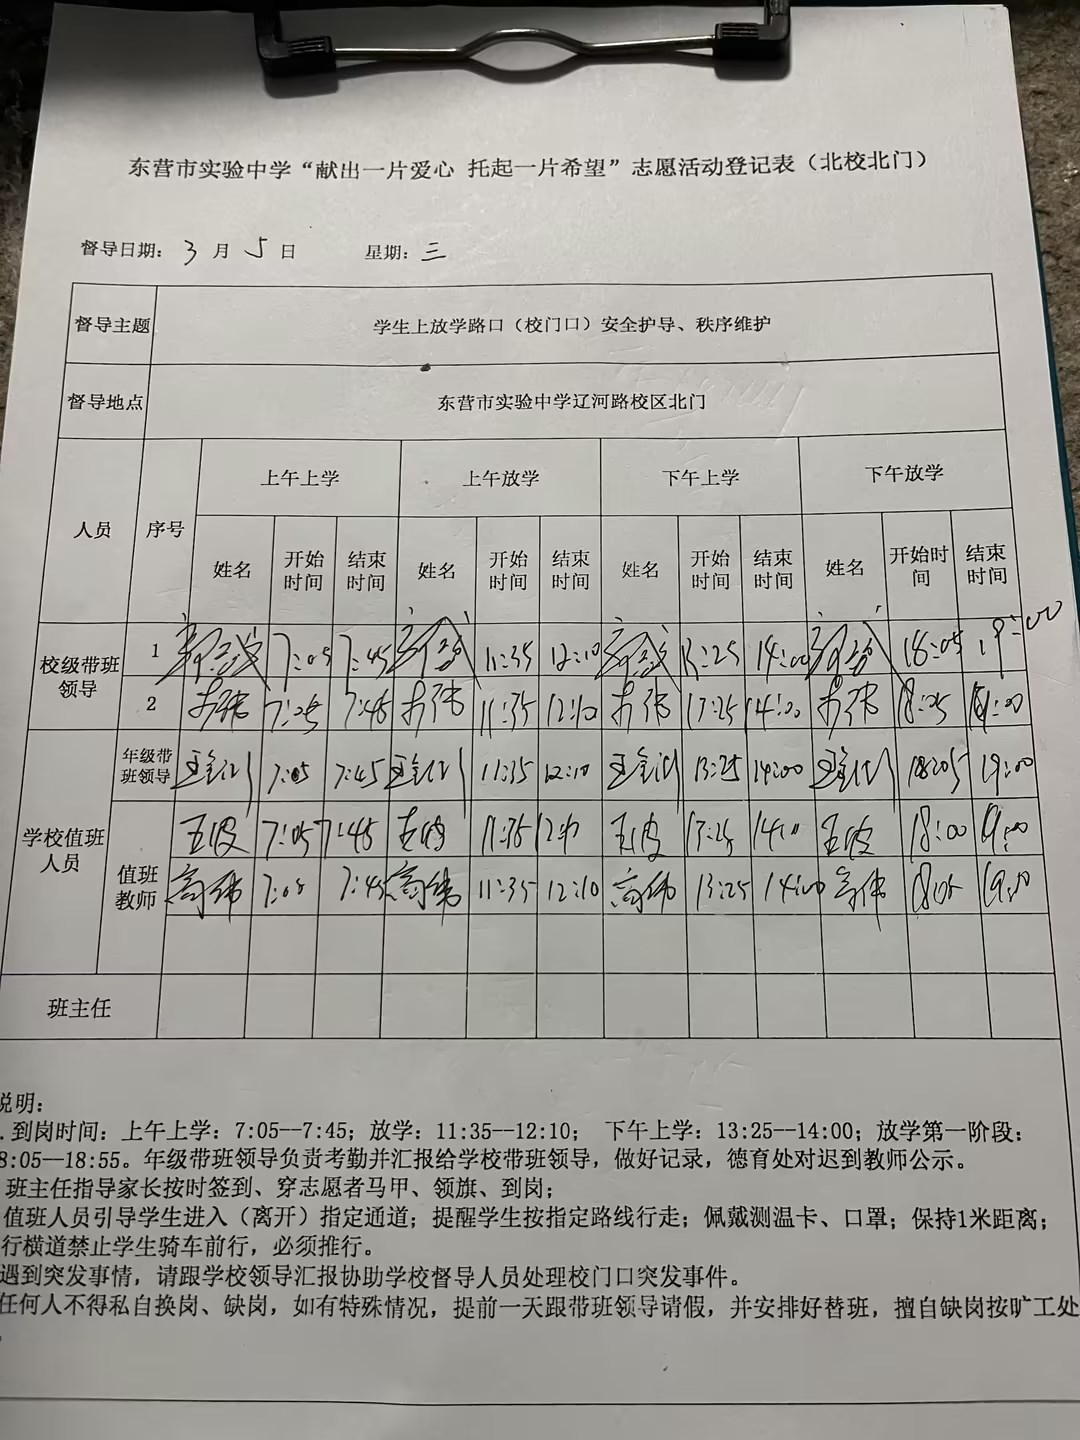 东营市实验中学“献出一片爱心 托起一片希望”志愿活动登记表（北校北门）
督导日期：3月5日 星期：三
督导主题 学生上放学路口（校门口）安全护导、秩序维护
督导地点 东营市实验中学辽河路校区北门
人员 序号 上午上学 上午放学 下午上学 下午放学
姓名 开始时间 结束时间 姓名 开始时间 结束时间 姓名 开始时间 结束时间 姓名 开始时间 结束时间
校级带班领导 1 7:05 7:45 11:35 12:10 13:25 14:00 18:05 19:00
2 7:05 7:45 11:35 12:10 13:25 14:00 18:05 19:00
学校值班人员 年级带班领导 7:05 7:45 11:35 12:10 13:25 14:00 18:05 19:00
值班教师 王波 7:05 7:45 王波 11:35 王波 13:25 王波 18:00 19:00
高伟 7:05 7:45 高伟 11:35 12:10 高伟 13:25 14:00 高伟 18:05
班主任
说明：
.到岗时间：上午上学：7:05--7:45；放学：11:35--12:10； 下午上学：13:25--14:00；放学第一阶段：
8:05--18:55。年级带班领导负责考勤并汇报给学校带班领导，做好记录，德育处对迟到教师公示。
班主任指导家长按时签到、穿志愿者马甲、领旗、到岗；
值班人员引导学生进入（离开）指定通道；提醒学生按指定路线行走；佩戴测温卡、口罩；保持1米距离；
行横道禁止学生骑车前行，必须推行。
遇到突发事情，请跟学校领导汇报协助学校督导人员处理校门口突发事件。
任何人不得私自换岗、缺岗，如有特殊情况，提前一天跟带班领导请假，并安排好替班，擅自缺岗按旷工处
。